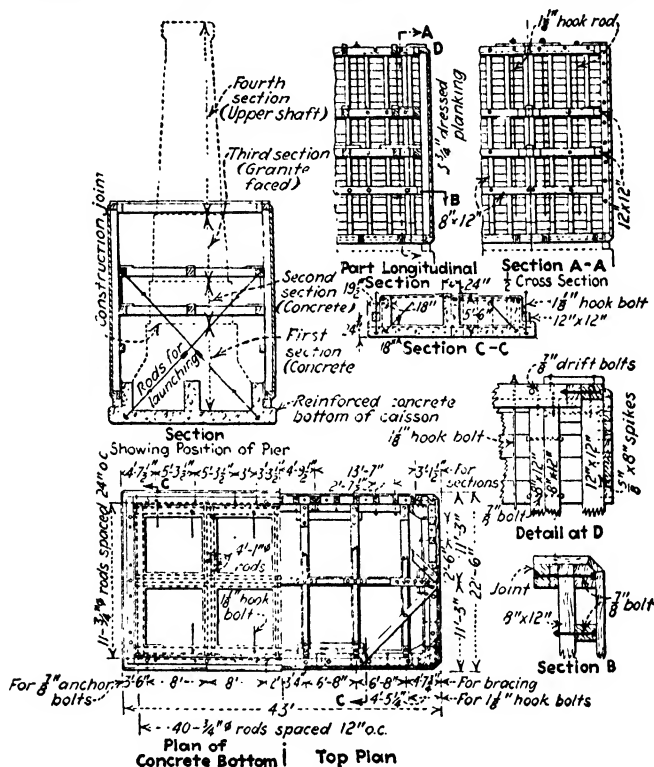 Fourth
section
(Upper shaft)
Third section
(Granite
faced)
Construction join
Second
section
(Concrete)
First
section
(Concrete
Rods for
launching
Reinforced concrete
bottom of caisson
Section
Showing Position of Pier
A
D
5¾" dressed
planking
B
8"x12"
Part Longitudinal
Section
1⅛" hook rod
12x12"
Section A-A
½ Cross Section
24"
18"
5'-6"
18"
1⅛" hook bolt
12"x12"
Section C-C
⅞" drift bolts
1⅛" hook bolt
8"x12"
8"x12"
12"x12"
⅝"x8" spikes
⅞" bolt
Detail at D
Joint
8"x12"
⅞"
bolt
Section B
4'-7½"
5'-3½"
5'-3½"
3'
3'-3½"
4'-9½"
13'-7"
3'-1½"
For
sections
C
11-¾"ø rods spaced 24" o.c
4'-1"ø
rods
1⅛" hook
bolt
2'-6"
11'-3"
11'-3"
22'-6"
For
⅞" anchor
bolts
3'-6"
8'
8'
2'
3'4"
6'-8"
6'-8"
4'-7¾"
For bracing
C
4'-5¼"
For 1⅛" hook bolts
43'
40-¾"ø rods spaced 12" o.c.
Plan of
Concrete Bottom
Top Plan